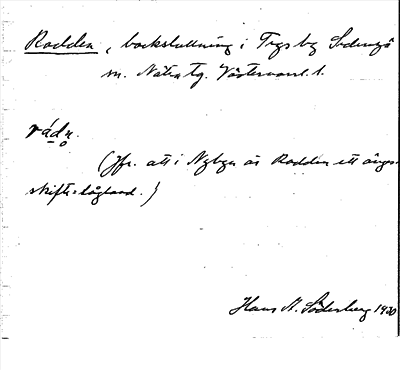 Rodden, backsluttning i Tygsby Sidensjö
m. Nätra tg. Västernorrl. l.
rádn.
(Jfr. att i Nybyn är Rodden ett ängs-
skifte = lågland.)
Hans A. Söderberg 1930